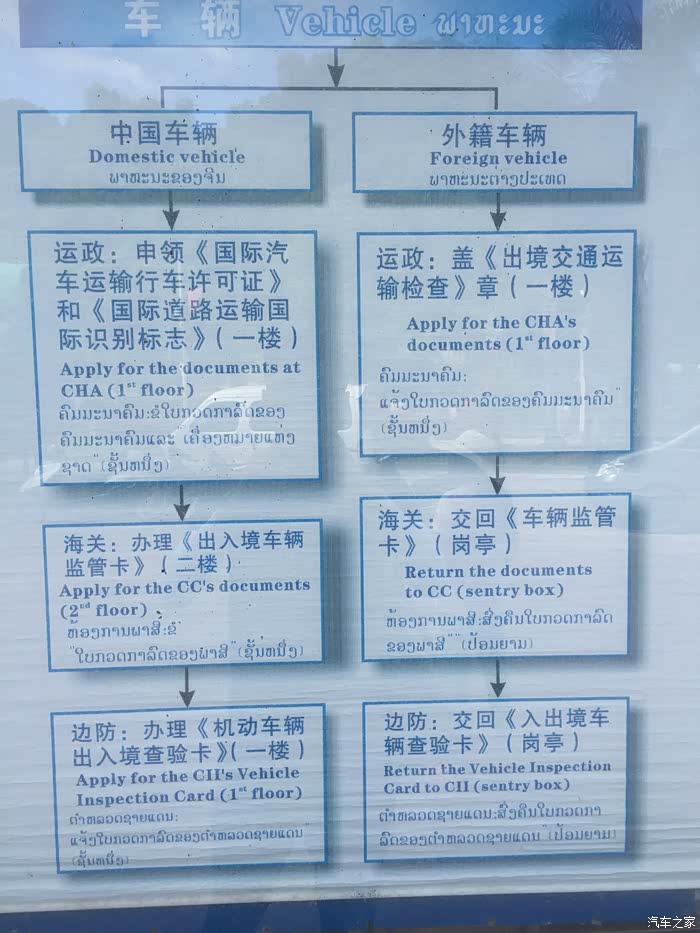 车 辆 Vehicle ພາຫະນະ
中国车辆
Domestic vehicle
ພາຫະນະຂອງຈີນ
运政：申领《国际汽
车运输行车许可证》
和《国际道路运输国
际识别标志》（一楼）
Apply for the documents at
CHA (1st floor)
ຄົມມະນາຄົມ:ຂໍໃບກວດກາລົດຂອງ
ຄົມມະນາຄົມແລະ ເຄື່ອງຫມາຍແຫ່ງ
ຊາດ"(ຊັ້ນຫນຶ່ງ)
海关：办理《出入境车辆
监管卡》（二楼）
Apply for the CC's documents
(2nd floor)
ຫ້ອງການພາສີ:ຂໍ
"ໃບກວດກາລົດຂອງພາສີ"(ຊັ້ນຫນຶ່ງ)
边防：办理《机动车辆
出入境查验卡》（一楼）
Apply for the CII's Vehicle
Inspection Card (1st floor)
ຕຳຫລວດຊາຍແດນ:
ແຈ້ງໃບກວດກາລົດຂອງຕຳຫລວດຊາຍແດນ"
(ຊັ້ນຫນຶ່ງ)
外籍车辆
Foreign vehicle
ພາຫະນະຕ່າງປະເທດ
运政：盖《出境交通运
输检查》章（一楼）
Apply for the CHA's
documents (1st floor)
ຄົມມະນາຄົມ:
ແຈ້ງໃບກວດກາລົດຂອງຄົມມະນາຄົມ"
(ຊັ້ນຫນຶ່ງ)
海关：交回《车辆监管
卡》（岗亭）
Return the documents
to CC (sentry box)
ຫ້ອງການພາສີ:ສົ່ງຄືນໃບກວດກາລົດ
ຂອງພາສີ""(ປ້ອມຍາມ)
边防：交回《入出境车
辆查验卡》（岗亭）
Return the Vehicle Inspection
Card to CII (sentry box)
ຕຳຫລວດຊາຍແດນ:ສົ່ງຄືນໃບກວດກາ
ລົດຂອງຕຳຫລວດຊາຍແດນ"(ປ້ອມຍາມ)
汽车之家